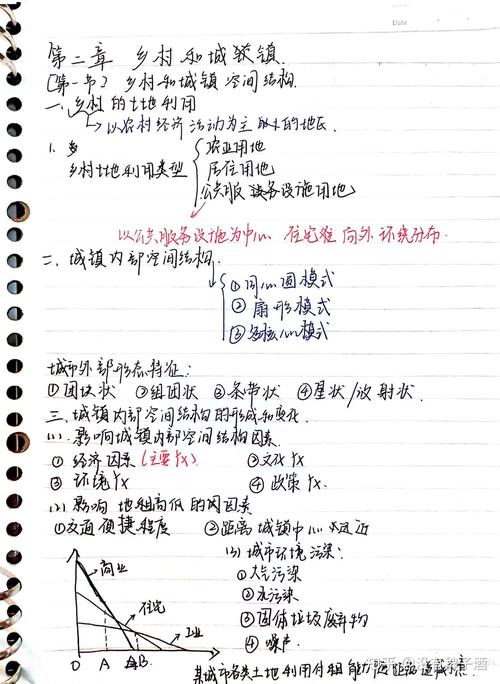 Date
第二章 乡村和城镇
(第一节) 乡村和城镇空间结构
一、乡村的土地利用
以农村经济活动为主的地区.
1. 乡
乡村土地利用类型
农业用地
居住用地
公共服务设施用地
以公共服务设施为中心 住宅 向外环绕分布.
二、城镇内部空间结构
①同心圆模式
②扇形模式
③多核心模式
城市外部形态特征:
①团块状 ②组团状 ③条带状 ④星状/放射状
三、城镇内部空间结构的形成和变化
(1). 影响城镇内部空间结构因素
① 经济因素(主要fx) ②文化fx
③ 环境fx ④ 政策fx.
(2) 影响地租高低的因素
①交通便捷程度 ②距离城镇中心远近
(3) 城市环境污染:
①大气污染
②水污染
③固体垃圾废弃物
④噪声
商业
住宅
工业
O A B
某城市各类土地利用付租能力随距离递减示意
知乎